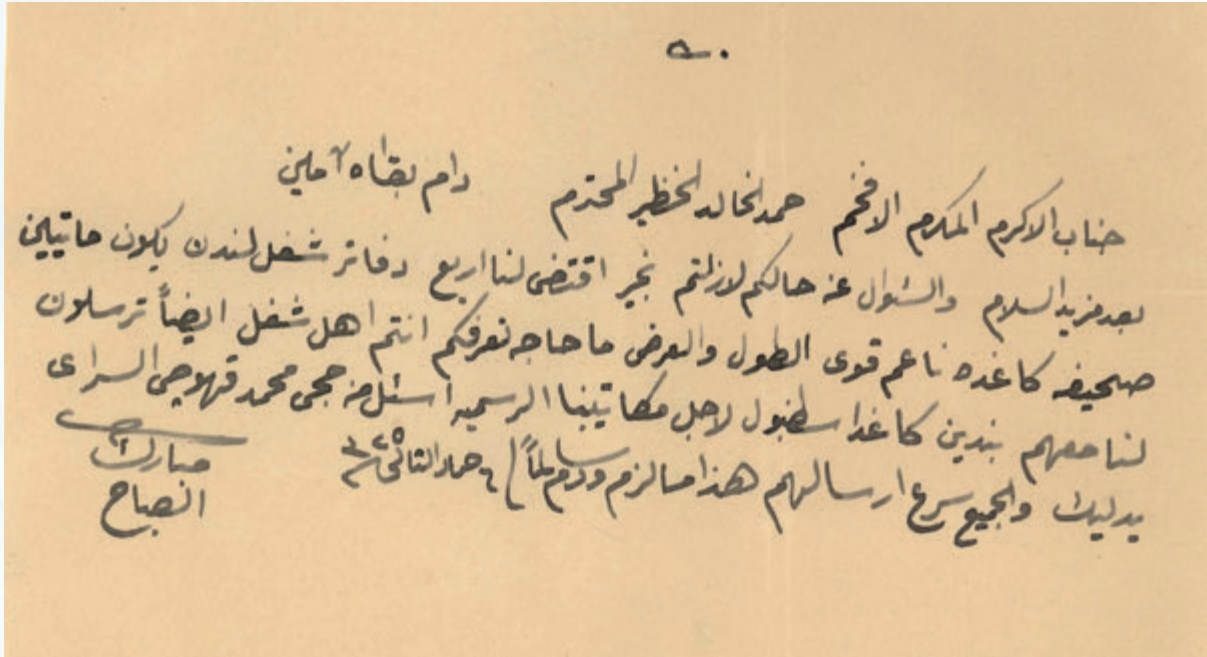 جناب الاكرم المكرم الافخم حمد الخالد الخظير المحترم دام بقاه آمين
بعد مزيد السلام والسئوال عن حالكم لازلتم بخير اقتضى لنا اربع دفاتر شغل لندن يكون ماتيين
صحيفه كاغده ناعم قوى الطول والعرض ما حاجه نعرفكم انتم اهل شغل ايضاً ترسلون
لنا معهم بندين كاغد اسطنبول لاجل مكاتيبنا الرسميه اسئل من حجى محمد قهوجى السراى
يدليك والجميع سرع ارسالهم هذا ما لزم ودم سالماً جماد الثانى
مبارك
الصباح